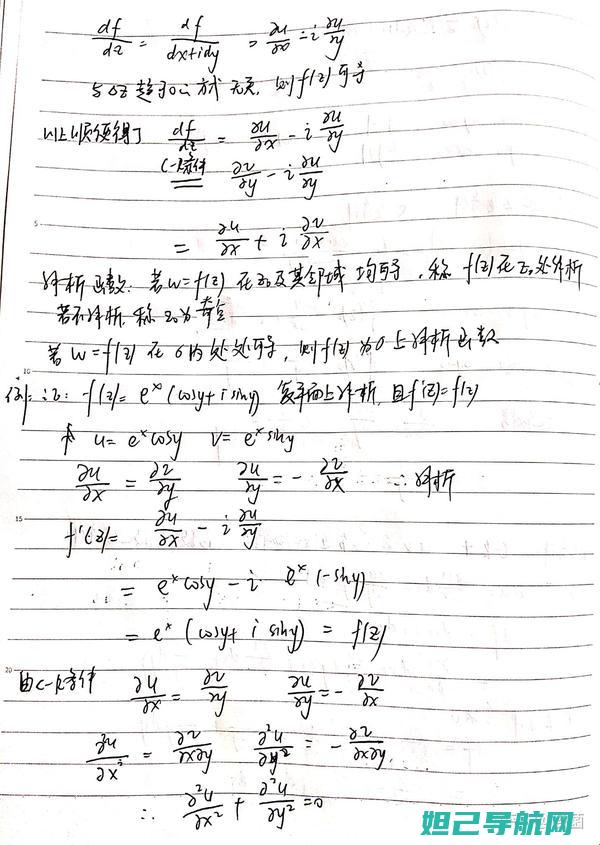 df/dz = df/(dx+idy) = ∂u/∂x - i ∂u/∂y
与Δz趋于0方式无关, 则f(z)可导
df/dz = ∂u/∂x - i ∂u/∂y
C-R条件 ∂v/∂y - i ∂u/∂y
5
= ∂u/∂x + i ∂v/∂x
解析函数: 若w=f(z) 在z₀及其邻域均可导, 称 f(z)在z₀处解析
若不解析, 称z₀为奇点
若w=f(z)在σ内处处可导, 则f(z)为σ上解析函数
10
例: 证: f(z)= eˣ(cosy+isiny) 复平面上解析, 且f'(z)=f(z)
u= eˣcosy v= eˣsiny
∂u/∂x = ∂v/∂y ∂u/∂y = - ∂v/∂x ∴解析
15
f'(z)= ∂u/∂x - i ∂u/∂y
= eˣcosy - i eˣ(-siny)
= eˣ(cosy+ i siny) = f(z)
20
由C-R条件 ∂u/∂x = ∂v/∂y ∂u/∂y = - ∂v/∂x
∂²u/∂x² = ∂v/∂x∂y ∂²u/∂y² = - ∂v/∂x∂y
∴ ∂²u/∂x² + ∂²u/∂y² =0
妲己导航网